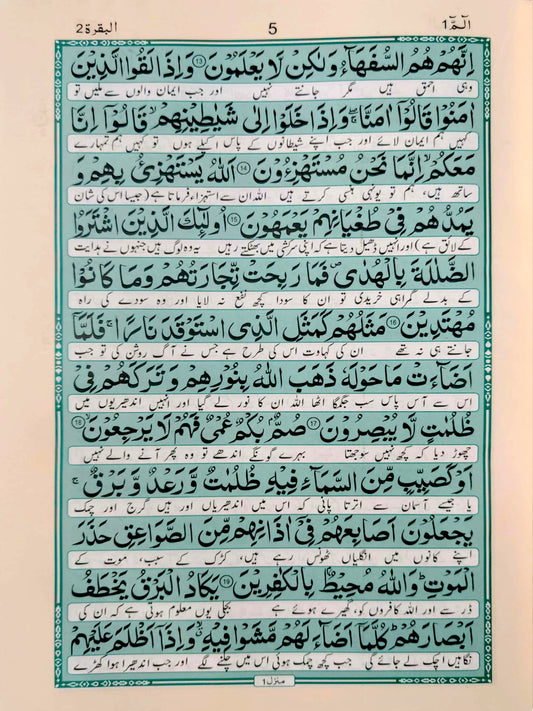 الٓمّٓ 1 5 البقرة 2
اِنَّهُمْ هُمُ السُّفَهَآءُ وَلٰكِنْ لَّا یَعْلَمُوْنَ ۱۳ وَاِذَا لَقُوا الَّذِیْنَ
وہی احمق ہیں مگر جانتے نہیں اور جب ایمان والوں سے ملیں تو
اٰمَنُوْا قَالُوْۤا اٰمَنَّا ۖۚ وَاِذَا خَلَوْا اِلٰی شَیٰطِیْنِهِمْ ۙ قَالُوْۤا اِنَّا
کہیں ہم ایمان لائے اور جب اپنے شیطانوں کے پاس اکیلے ہوں تو کہیں ہم تمہارے
مَعَكُمْ ۙ اِنَّمَا نَحْنُ مُسْتَهْزِءُوْنَ ۱۴ اَللّٰهُ یَسْتَهْزِئُ بِهِمْ وَ
ساتھ ہیں، ہم تو یونہی ہنسی کرتے ہیں اللہ ان سے استہزاء فرماتا ہے (جیسا اس کی شان
یَمُدُّهُمْ فِیْ طُغْیَانِهِمْ یَعْمَهُوْنَ ۱۵ اُولٰٓئِكَ الَّذِیْنَ اشْتَرَوُا
کے لائق ہے) اور انہیں ڈھیل دیتا ہے کہ اپنی سرکشی میں بھٹکتے رہیں یہ وہ لوگ ہیں جنہوں نے ہدایت
الضَّلٰلَةَ بِالْهُدٰی ۪ فَمَا رَبِحَتْ تِّجَارَتُهُمْ وَمَا كَانُوْا
کے بدلے گمراہی خریدی تو ان کا سودا کچھ نفع نہ لایا اور وہ سودے کی راہ
مُهْتَدِیْنَ ۱۶ مَثَلُهُمْ كَمَثَلِ الَّذِی اسْتَوْقَدَ نَارًا ۚ فَلَمَّاۤ
جانتے ہی نہ تھے ان کی کہاوت اس کی طرح ہے جس نے آگ روشن کی تو جب
اَضَآءَتْ مَا حَوْلَهٗ ذَهَبَ اللّٰهُ بِنُوْرِهِمْ وَتَرَكَهُمْ فِیْ
اس سے آس پاس سب جگمگا اٹھا اللہ ان کا نور لے گیا اور انہیں اندھیریوں میں
ظُلُمٰتٍ لَّا یُبْصِرُوْنَ ۱۷ صُمٌّۢ بُكْمٌ عُمْیٌ فَهُمْ لَا یَرْجِعُوْنَ ۙ ۱۸
چھوڑ دیا کہ کچھ نہیں سوجھتا بہرے گونگے اندھے تو وہ پھر آنے والے نہیں
اَوْ كَصَیِّبٍ مِّنَ السَّمَآءِ فِیْهِ ظُلُمٰتٌ وَّرَعْدٌ وَّبَرْقٌ ۚ
یا جیسے آسمان سے اترتا پانی کہ اس میں اندھیریاں ہیں اور گرج اور چمک
یَجْعَلُوْنَ اَصَابِعَهُمْ فِیْۤ اٰذَانِهِمْ مِّنَ الصَّوَاعِقِ حَذَرَ
اپنے کانوں میں انگلیاں ٹھونس رہے ہیں، کڑک کے سبب، موت کے
الْمَوْتِ ؕ وَاللّٰهُ مُحِیْطٌۢ بِالْكٰفِرِیْنَ ۱۹ یَكَادُ الْبَرْقُ یَخْطَفُ
ڈر سے اور اللہ کافروں کو، گھیرے ہوئے ہے بجلی یوں معلوم ہوتی ہے کہ ان کی
اَبْصَارَهُمْ ؕ كُلَّمَاۤ اَضَآءَ لَهُمْ مَّشَوْا فِیْهِ ۙ وَاِذَاۤ اَظْلَمَ عَلَیْهِمْ
نگاہیں اچک لے جائے گی جب کچھ چمک ہوئی اس میں چلنے لگے اور جب اندھیرا ہوا کھڑے
منزل 1